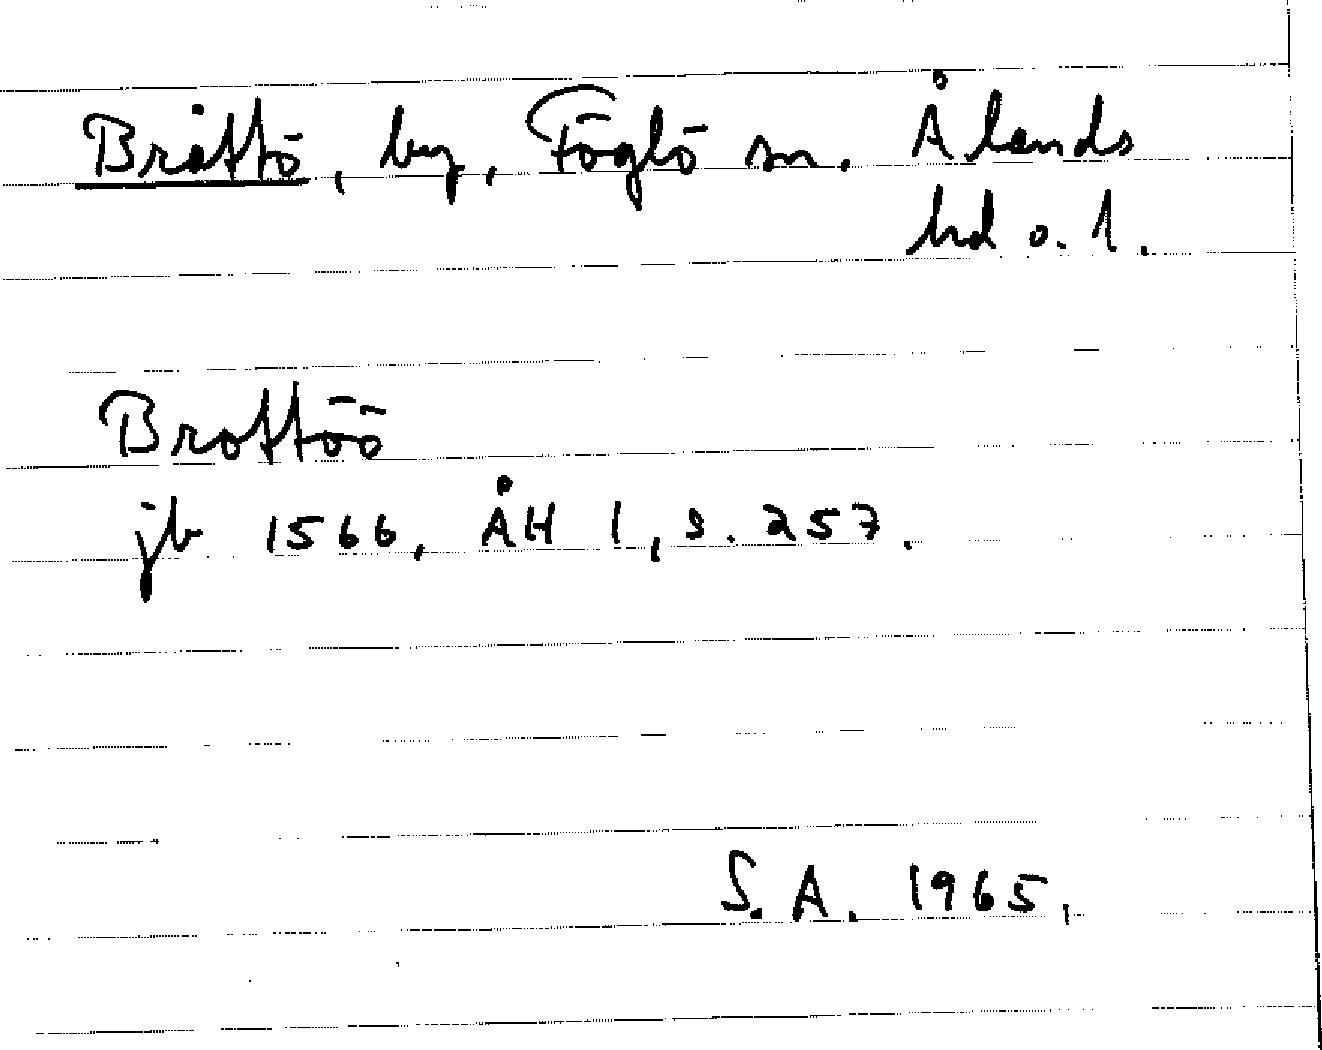 Bråttö, by, Föglö sn. Ålands
hd o. l.
Brottöö
jb 1566, ÅH 1, s. 257.
S.A. 1965.